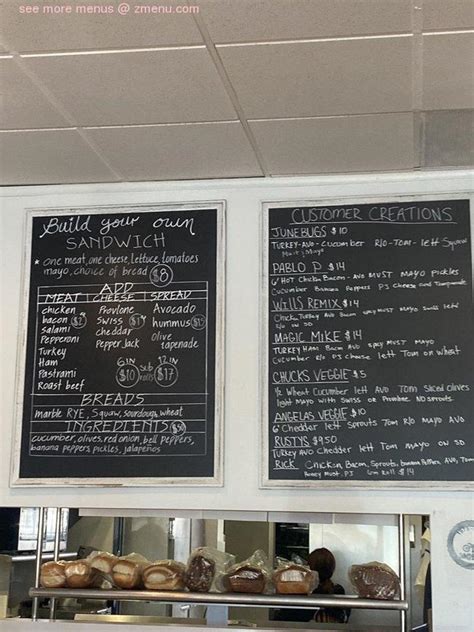 see more menus @ zmenu.com
Build your own
SANDWICH
* one meat, one cheese, lettuce, tomatoes
mayo, choice of bread $8
ADD
MEAT CHEESE SPREAD
chicken Provlone Avocado
bacon $2 Swiss $1 hummus
salami cheddar Olive
Pepperoni Pepper Jack tapenade
Turkey
Ham 6 IN Sub 12 IN
Pastrami $10 rolls $17
Roast beef
BREADS
marble RYE, Squaw, sourdough, wheat
INGREDIENTS
cucumber, olives, red onion, bell peppers,
banana peppers, pickles, jalapeños
CUSTOMER CREATIONS
JUNEBUGS $10
TURKEY-AVO-Cucumber R/O-TOM-lett Squaw
PABLO P $14
6" HOT Chicken Bacon-AVO MUST Mayo Pickles
Cucumber Banana Peppers PJ Cheese and Tampanade
WILLS REMIX $14
Chick, Turkey AVO Bacon spicy must mayo Swiss lett
MAGIC MIKE $14
TURKEY Ham Bacon AVO spicy MUST Mayo
Cucumber PJ cheese lett Tom on wheat
CHUCKS VEGGIE $5
1/2 Wheat Cucumber lett AVO Tom Sliced olives
light Mayo with Swiss or Provlone. NO sprouts.
ANGELAS VEGGIE $10
6" Cheddar lett Sprouts
RUSTYS $9.50
TURKEY AVO Cheddar lett Tom MAYO ON SD
RICK Chicken, Bacon, Sprouts, banana Pepper, AVO, Tom,
Honey Must. PJ 6in Roll $14